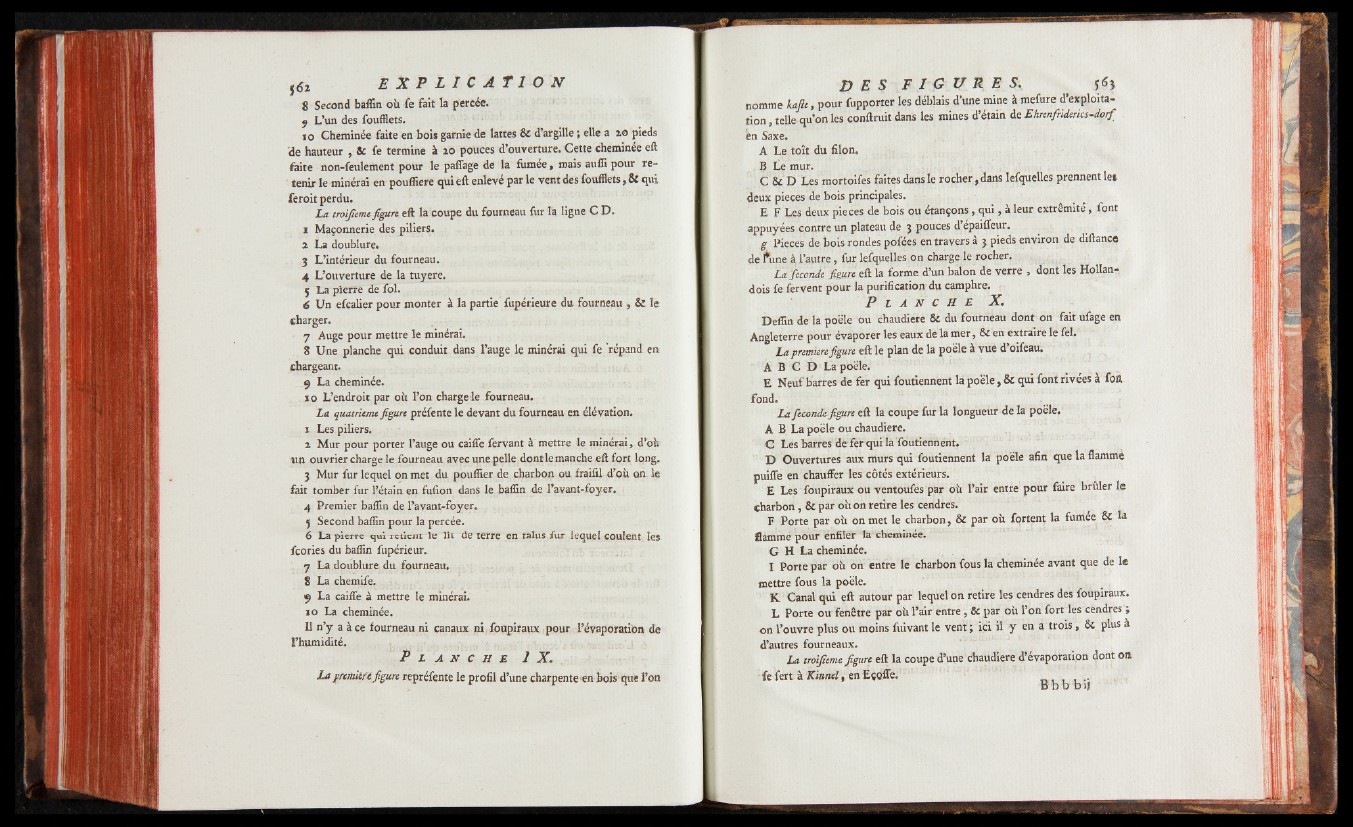 562 EXPLICATION
8 Second baſſin où ſe fait la percée.
9 L'un des ſoufflets.
10 Cheminée faite en bois garnie de lattes & d'argille ; elle a 20 pieds
de hauteur , & ſe termine à 20 pouces d'ouverture. Cette cheminée eſt
faite non-ſeulement pour le paſſage de la fumée, mais auſſi pour re-
tenir le minérai en pouſſiere qui eſt enlevé par le vent des ſoufflets, & qui
ſeroit perdu.
La troiſieme figure eſt la coupe du fourneau ſur la ligne C D.
1 Maçonnerie des piliers.
2 La doublure.
3 L'intérieur du fourneau.
4 L'ouverture de la tuyere.
5 La pierre de ſol.
6 Un eſcalier pour monter à la partie ſupérieure du fourneau , & le
charger.
7 Auge pour mettre le minérai.
8 Une planche qui conduit dans l'auge le minérai qui ſe répand en
chargeant.
9 La cheminée.
10 L'endroit par où l'on charge le fourneau.
La quatrieme figure préſente le devant du fourneau en élévation.
1 Les piliers.
2 Mur pour porter l'auge ou caiſſe ſervant à mettre le minérai, d'où
un ouvrier charge le fourneau avec une pelle dont le manche eſt fort long.
3 Mur ſur lequel on met du pouſſier de charbon ou fraiſil d'où on le
fait tomber ſur l'étain en fuſion dans le baſſin de l'avant-foyer.
4 Premier baſſin de l'avant-foyer.
5 Second baſſin pour la percée.
6 La pierre qui retient le lit de terre en talus ſur lequel coulent les
ſcories du baſſin ſupérieur.
7 La doublure du fourneau.
8 La chemiſe.
9 La caiſſe à mettre le minérai.
10 La cheminée.
Il n'y a à ce fourneau ni canaux ni ſoupiraux pour l'évaporation de
l'humidité.
PLANCHE IX.
La premiére figure repréſente le profil d'une charpente en bois que l'on
DES FIGURES. 563
nomme kaſte, pour ſupporter les déblais d'une mine à meſure d'exploita-
tion, telle qu'on les conſtruit dans les mines d'étain de Ehrenfriderics-dorf
en Saxe.
A Le toît du filon.
B Le mur.
C & D Les mortoiſes faites dans le rocher, dans leſquelles prennent les
deux pieces de bois principales.
E F Les deux pieces de bois ou étançons , qui , à leur extrêmité, ſont
appuyées contre un plateau de 3 pouces d'épaiſſeur.
g Pieces de bois rondes poſées en travers à 3 pieds environ de diſtance
de l'une à l'autre, ſur leſquelles on charge le rocher.
La ſeconde figure eſt la forme d'un balon de verre , dont les Hollan-
dois ſe ſervent pour la purification du camphre.
PLANCHE X.
Deſſin de la poële ou chaudiere & du fourneau dont on fait uſage en
Angleterre pour évaporer les eaux de la mer, & en extraire le ſel.
La premiere figure eſt le plan de la poële à vue d'oiſeau.
A B C D La poële.
E Neuf barres de fer qui ſoutiennent la poële, & qui ſont rivées à ſon
fond.
La ſeconde figure eſt la coupe ſur la longueur de la poële.
A B La poële ou chaudiere.
C Les barres de fer qui la ſoutiennent.
D Ouvertures aux murs qui ſoutiennent la poële afin que la flamme
puiſſe en chauffer les côtés extérieurs.
E Les ſoupiraux ou ventouſes par où l'air entre pour faire brûler le
charbon, & par où on retire les cendres.
F Porte par où on met le charbon, & par où ſortent la fumée & la
flamme pour enfiler la cheminée.
G H La cheminée.
I Porte par où on entre le charbon ſous la cheminée avant que de le
mettre ſous la poële.
K Canal qui eſt autour par lequel on retire les cendres des ſoupiraux.
L Porte ou fenêtre par où l'air entre , & par où l'on ſort les cendres ;
on l'ouvre plus ou moins ſuivant le vent ; ici il y en a trois , & plus à
d'autres fourneaux.
La troiſieme figure eſt la coupe d'une chaudiere d'évaporation dont on
ſe ſert à Kinnel, en Eçoſſe.
Bbbbij